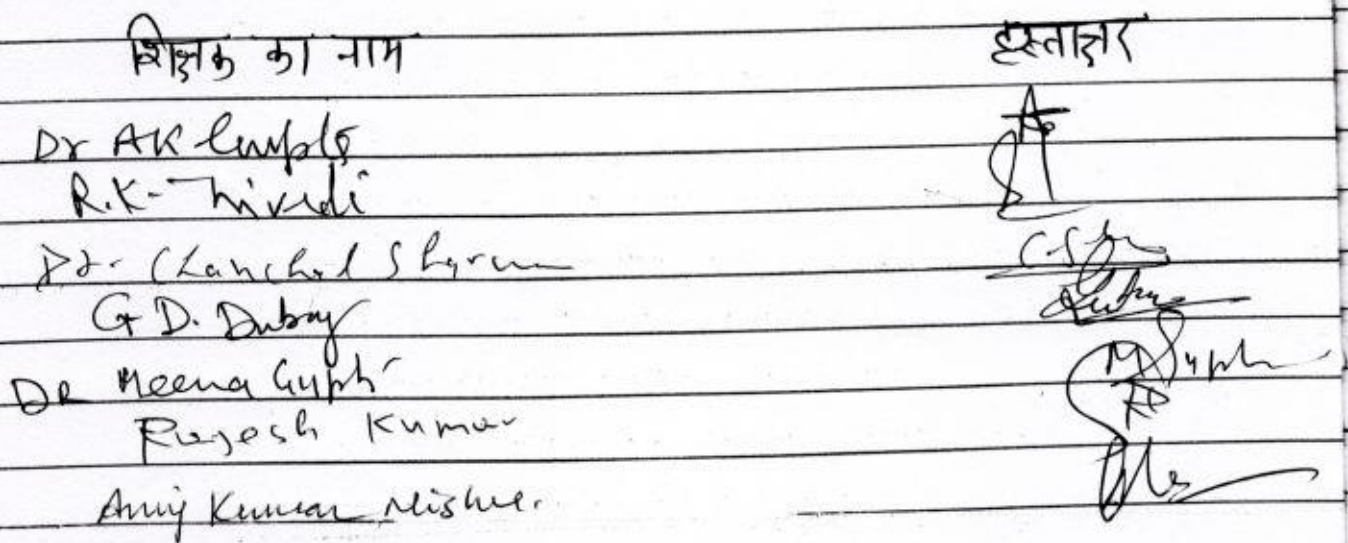 शिक्षक का नाम हस्ताक्षर
Dr AK Gupta
R.K. Trivedi
Dr. Chanchal Sharma
G D. Dubey
DR Meena Gupta M Gupta
Rajesh Kumar
Kumar Mishra.